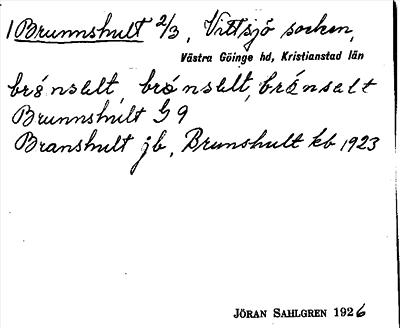 1 Brunnshult 2/3, Vittsjö socken,
Västra Göinge hd, Kristianstad län
Brunnshult G 9
Branshult jb, Brunshult kb 1923
JÖRAN SAHLGREN 1926